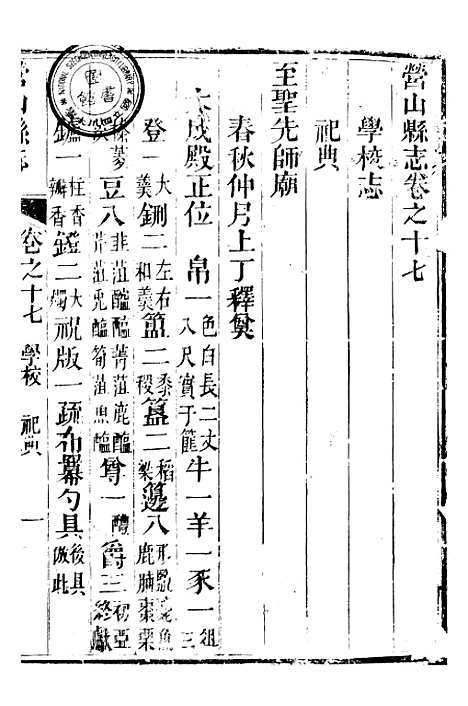 營山縣志卷之十七
學校志
祀典
至聖先師廟
春秋仲月上丁釋奠
大成殿正位 帛一色白長二丈八尺實于篚牛一羊一豕一俎三
登一大羹鉶二左右和羹簠二黍稷簋二稻梁籩八形鹽 魚鹿脯棗栗
菱 豆八韭菹醓醢菁菹鹿醢芹菹兎醢筍菹魚醢尊一醴爵三初亞終獻
鑪一柱香瓣香鐙二大燭祝版一疏布冪勺具後具倣此
營山縣志
卷之十七 學校 祀典 一